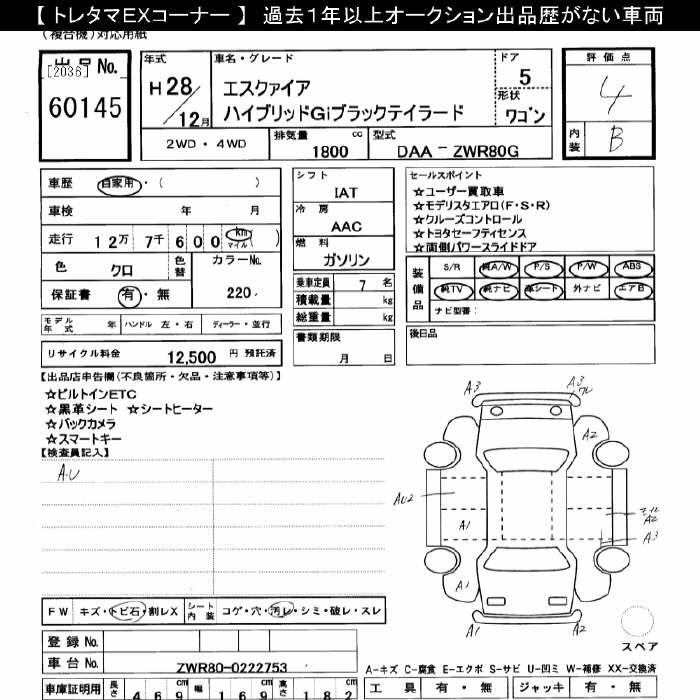 【 トレタマEXコーナー 】 過去1年以上オークション出品歴がない車両
(複合機)対応用紙
出品No.
[2036]
60145
年式
H28/12月
車名・グレード
エスクァイア
ハイブリッドGiブラックテイラード
ドア
5
形状
ワゴン
評価点
4
内装
B
2WD・4WD
排気量
1800
cc
型式
DAA - ZWR80G
車歴
自家用・( )
車検 年 月
走行 12万 7千600 km マイル( )
色 クロ
色替
カラーNo.
220.
保証書 有・無
シフト
IAT
冷房
AAC
燃料
ガソリン
乗車定員 7 名
積載量 kg
総重量 kg
書類期限
月 日
セールスポイント
☆ユーザー買取車
☆モデリスタエアロ(F・S・R)
☆クルーズコントロール
☆トヨタセーフティセンス
☆両側パワースライドドア
装備品
S/R 純A/W P/S P/W ABS
純TV 純ナビ 革シート 外ナビ エアB
ナビ型番:
後日品
モデル年式 年 ハンドル 左・右 ディーラー・並行
リサイクル料金 12,500 円 預託済
【出品店申告欄(不良箇所・欠品・注意事項等)】
☆ビルトインETC
☆黒革シート ☆シートヒーター
☆バックカメラ
☆スマートキー
【検査員記入】
A.U
A3
A3
ワレ
A2
AU2
A1
A2
A3
A1
A1
A2
スペア
FW キズ・トビ石・割レX シート内装 コゲ・穴・汚レ・シミ・破レ・スレ
登録No.
車台No. ZWR80-0222753
A-キズ C-腐食 E-エクボ S-サビ U-凹ミ W-補修 XX-交換済
車庫証明用 長さ 469 幅 169 高さ 182
工具 有・無 ジャッキ 有・無